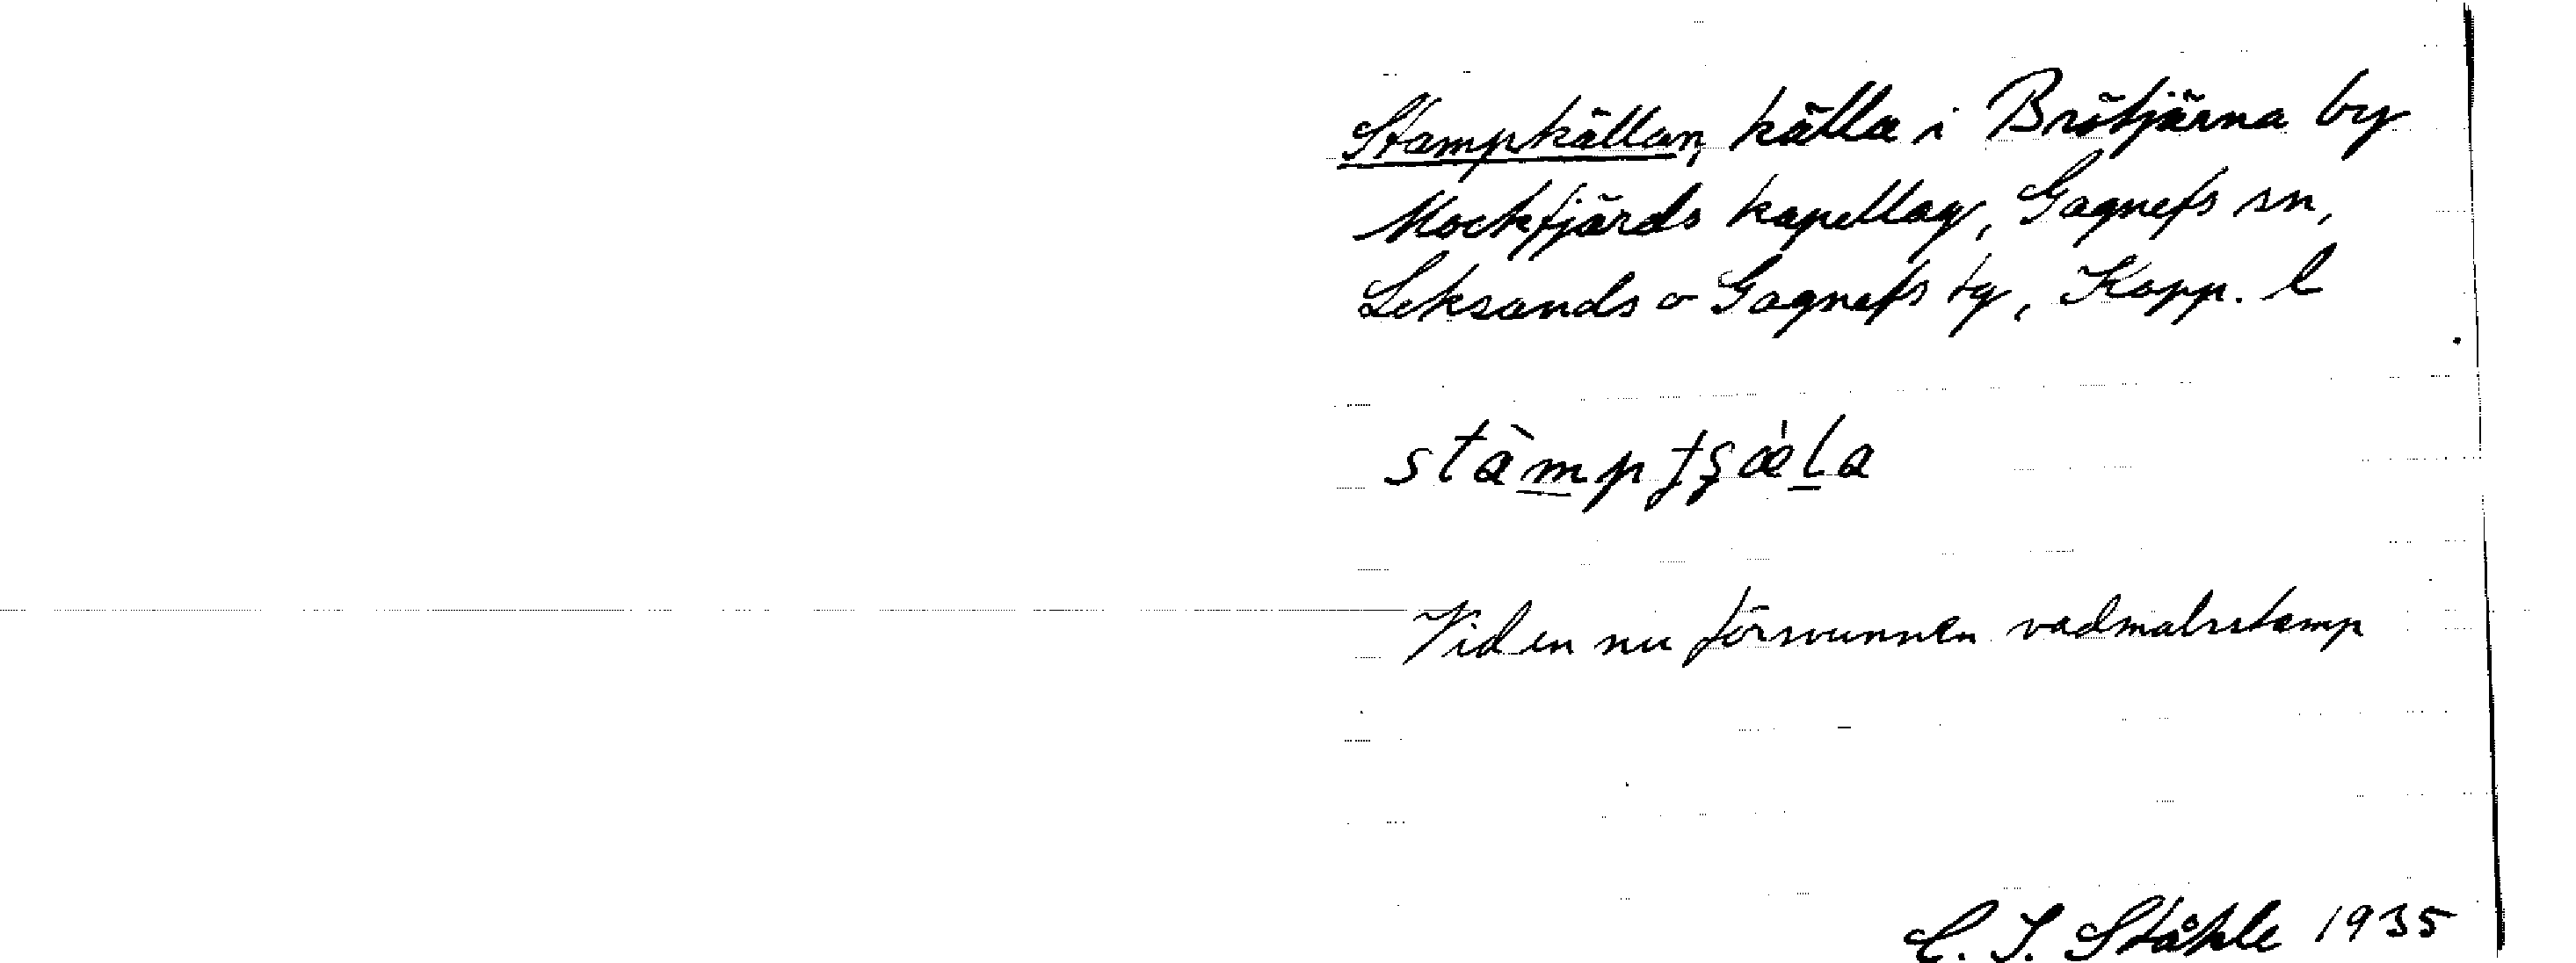 Stampkällan, källa i Brötjärna by
Mockfjärds kapellag, Gagnefs sn,
Leksands o Gagnefs tg, Kopp. l
stàmptʂæ̀la
Vid en nu försvunnen vadmalsstamp
C. I. Ståhle 1935